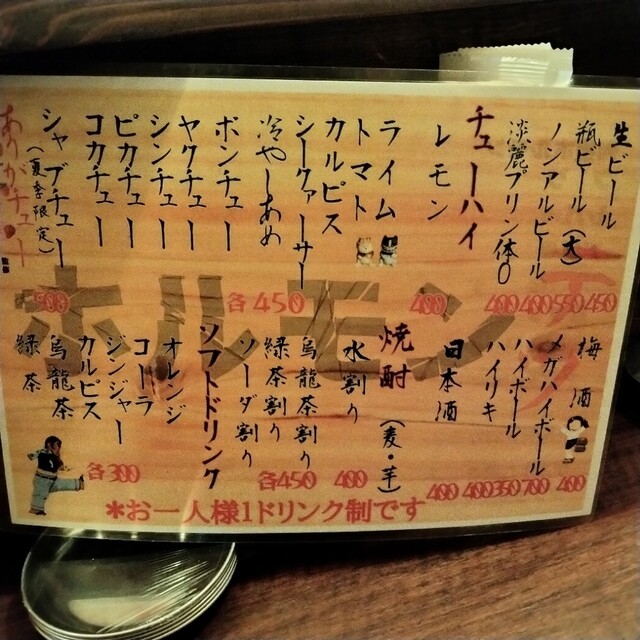 生ビール 450
瓶ビール(大) 550
ノンアルビール 400
淡麗プリン体0 400
チューハイ
レモン 400
ライム
トマト
カルピス
シークァーサー
冷やしあめ
各450
ボンチュー
ヤクチュー
シンチュー
ピカチュー
コカチュー
シャブチュー
(夏季限定)
500
ありがチュー
ホルモン
梅酒 400
メガハイボール 700
ハイボール 350
ハイリキ 400
日本酒 400
焼酎(麦・芋)
水割り 400
烏龍茶割り
緑茶割り
ソーダ割り
各450
ソフトドリンク
オレンジ
コーラ
ジンジャー
カルピス
烏龍茶
緑茶
各300
*お一人様1ドリンク制です